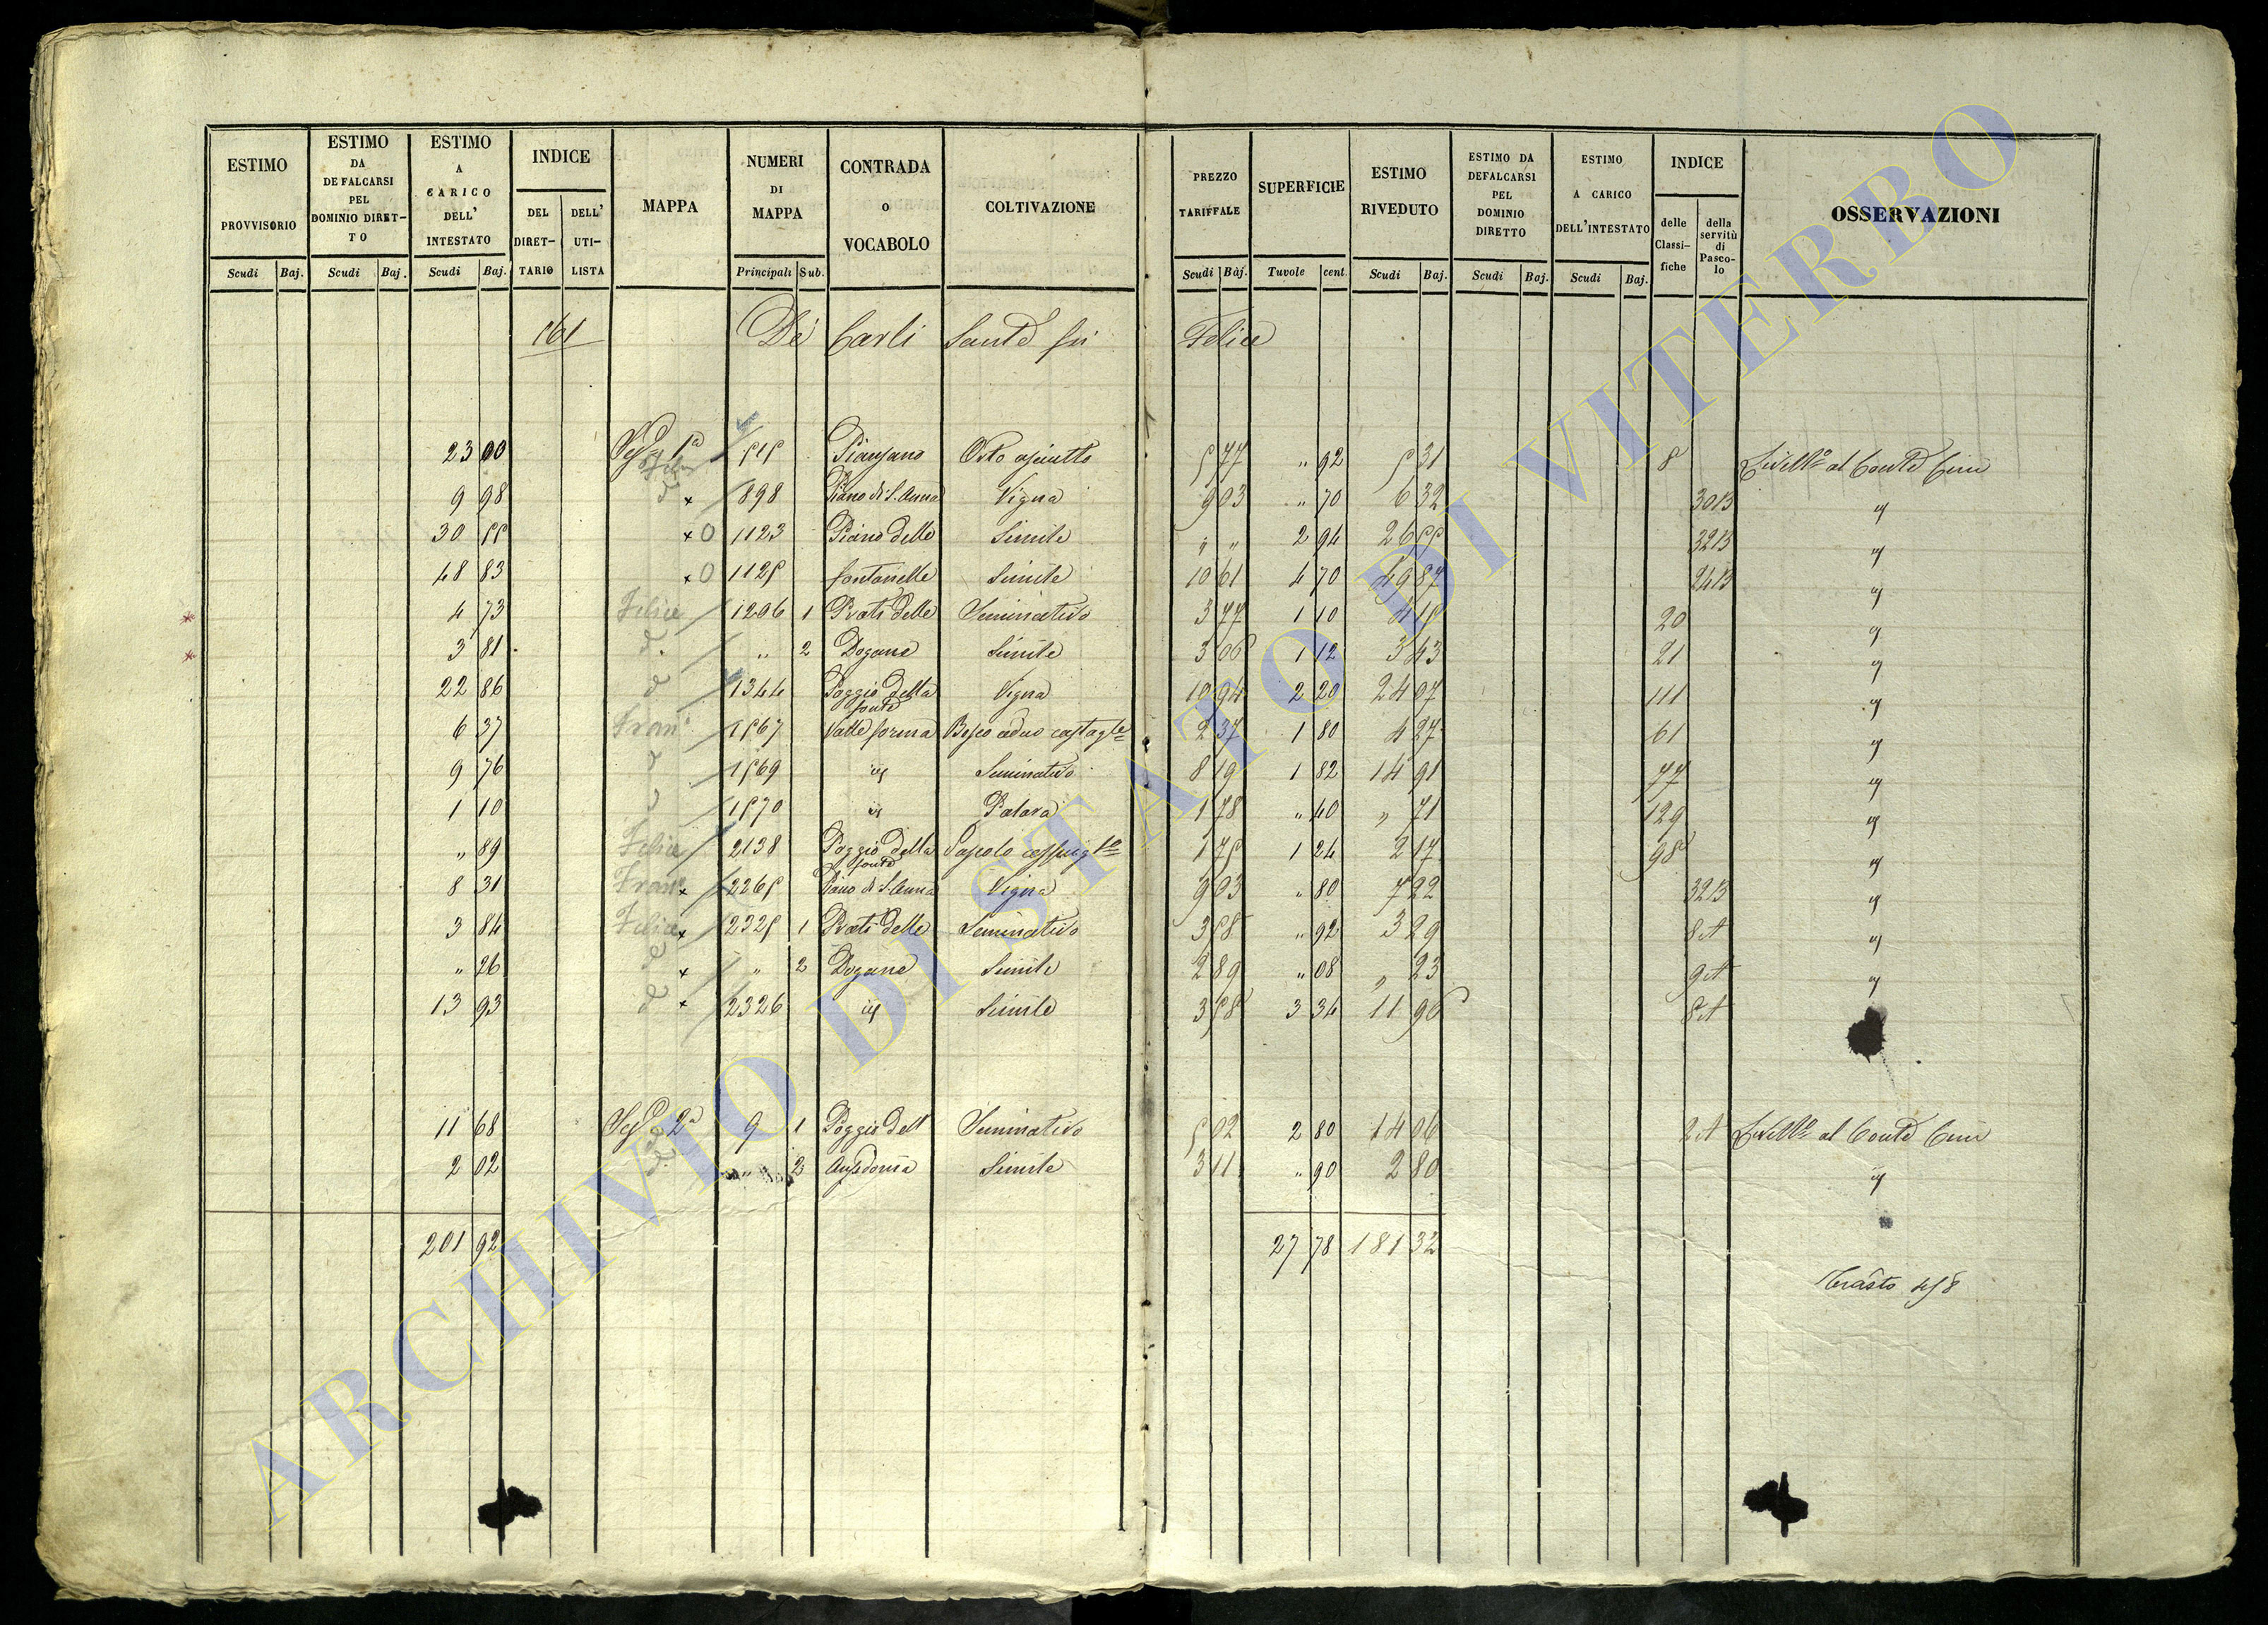 ESTIMO PROVVISORIO
Scudi Baj.
ESTIMO DA DEFALCARSI PEL DOMINIO DIRET-TO
Scudi Baj.
ESTIMO A CARICO DELL' INTESTATO
Scudi Baj.
INDICE
DEL DIRET-TARIO
DELL' UTI-LISTA
MAPPA
NUMERI DI MAPPA
Principali Sub.
CONTRADA o VOCABOLO
COLTIVAZIONE
PREZZO TARIFFALE
Scudi Baj.
SUPERFICIE
Tavole cent.
ESTIMO RIVEDUTO
Scudi Baj.
ESTIMO DA DEFALCARSI PEL DOMINIO DIRETTO
Scudi Baj.
ESTIMO A CARICO DELL'INTESTATO
Scudi Baj.
INDICE
delle Classi-fiche
della servitù di Pasco-lo
OSSERVAZIONI
161 De Carli Sante fu Felice
23 00 1ª 515 Piansano Orto asciutto 5 77 " 92 5 31 8 Livellº al Conte Cini
9 98 d x 898 Piano di S. Anna Vigna 9 03 " 70 6 32 30 B
30 55 x O 1123 Piano delle Simile " " 2 94 26 55 32 B
48 83 x O 1125 fontanelle Simile 10 61 4 70 49 87 24 B
4 73 Felice 1206 1 Prati delle Seminativo 3 77 1 10 4 15 20
3 81 d. " 2 Dogane Simile 3 06 1 12 3 43 21
22 86 d 1344 Poggio della fonte Vigna 10 94 2 20 24 07 111
6 37 Franº 1567 Valle forma Bosco ceduo castagle 2 37 1 80 4 27 61
9 76 d 1569 Seminativo 8 19 1 82 14 91 77
1 10 1570 1 78 " 40 " 71 129
" 89 Felice 2138 Poggio della fonte Pascolo 1 75 1 24 2 17 98
8 31 Franº x 2265 Piano di S. Anna Vigna 9 03 " 80 7 22 32 B
3 84 Felice x 2325 1 Prati delle Seminativo 3 58 " 92 3 29 8 A
" 26 d x " 2 Dogane Simile 2 89 " 08 " 23 9 A
13 93 d x 2326 Simile 3 58 3 34 11 96 8 A
11 68 2ª 9 1 Poggio dell Seminativo 5 02 2 80 14 06 2 A Livellº al Conte Cini
2 02 d. " 2 Ansedonia Simile 3 11 " 90 2 80
201 92 27 78 181 32
458
ARCHIVIO DI STATO DI VITERBO